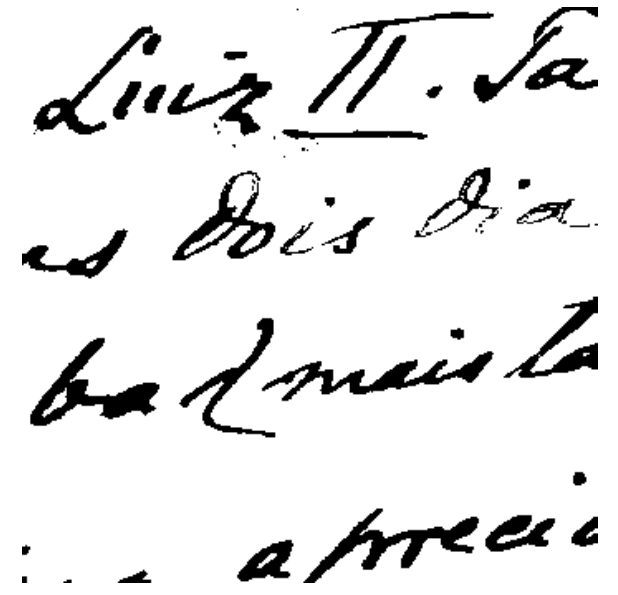 Luiz II. Ta
es dois dia
ba mais ta
a preci